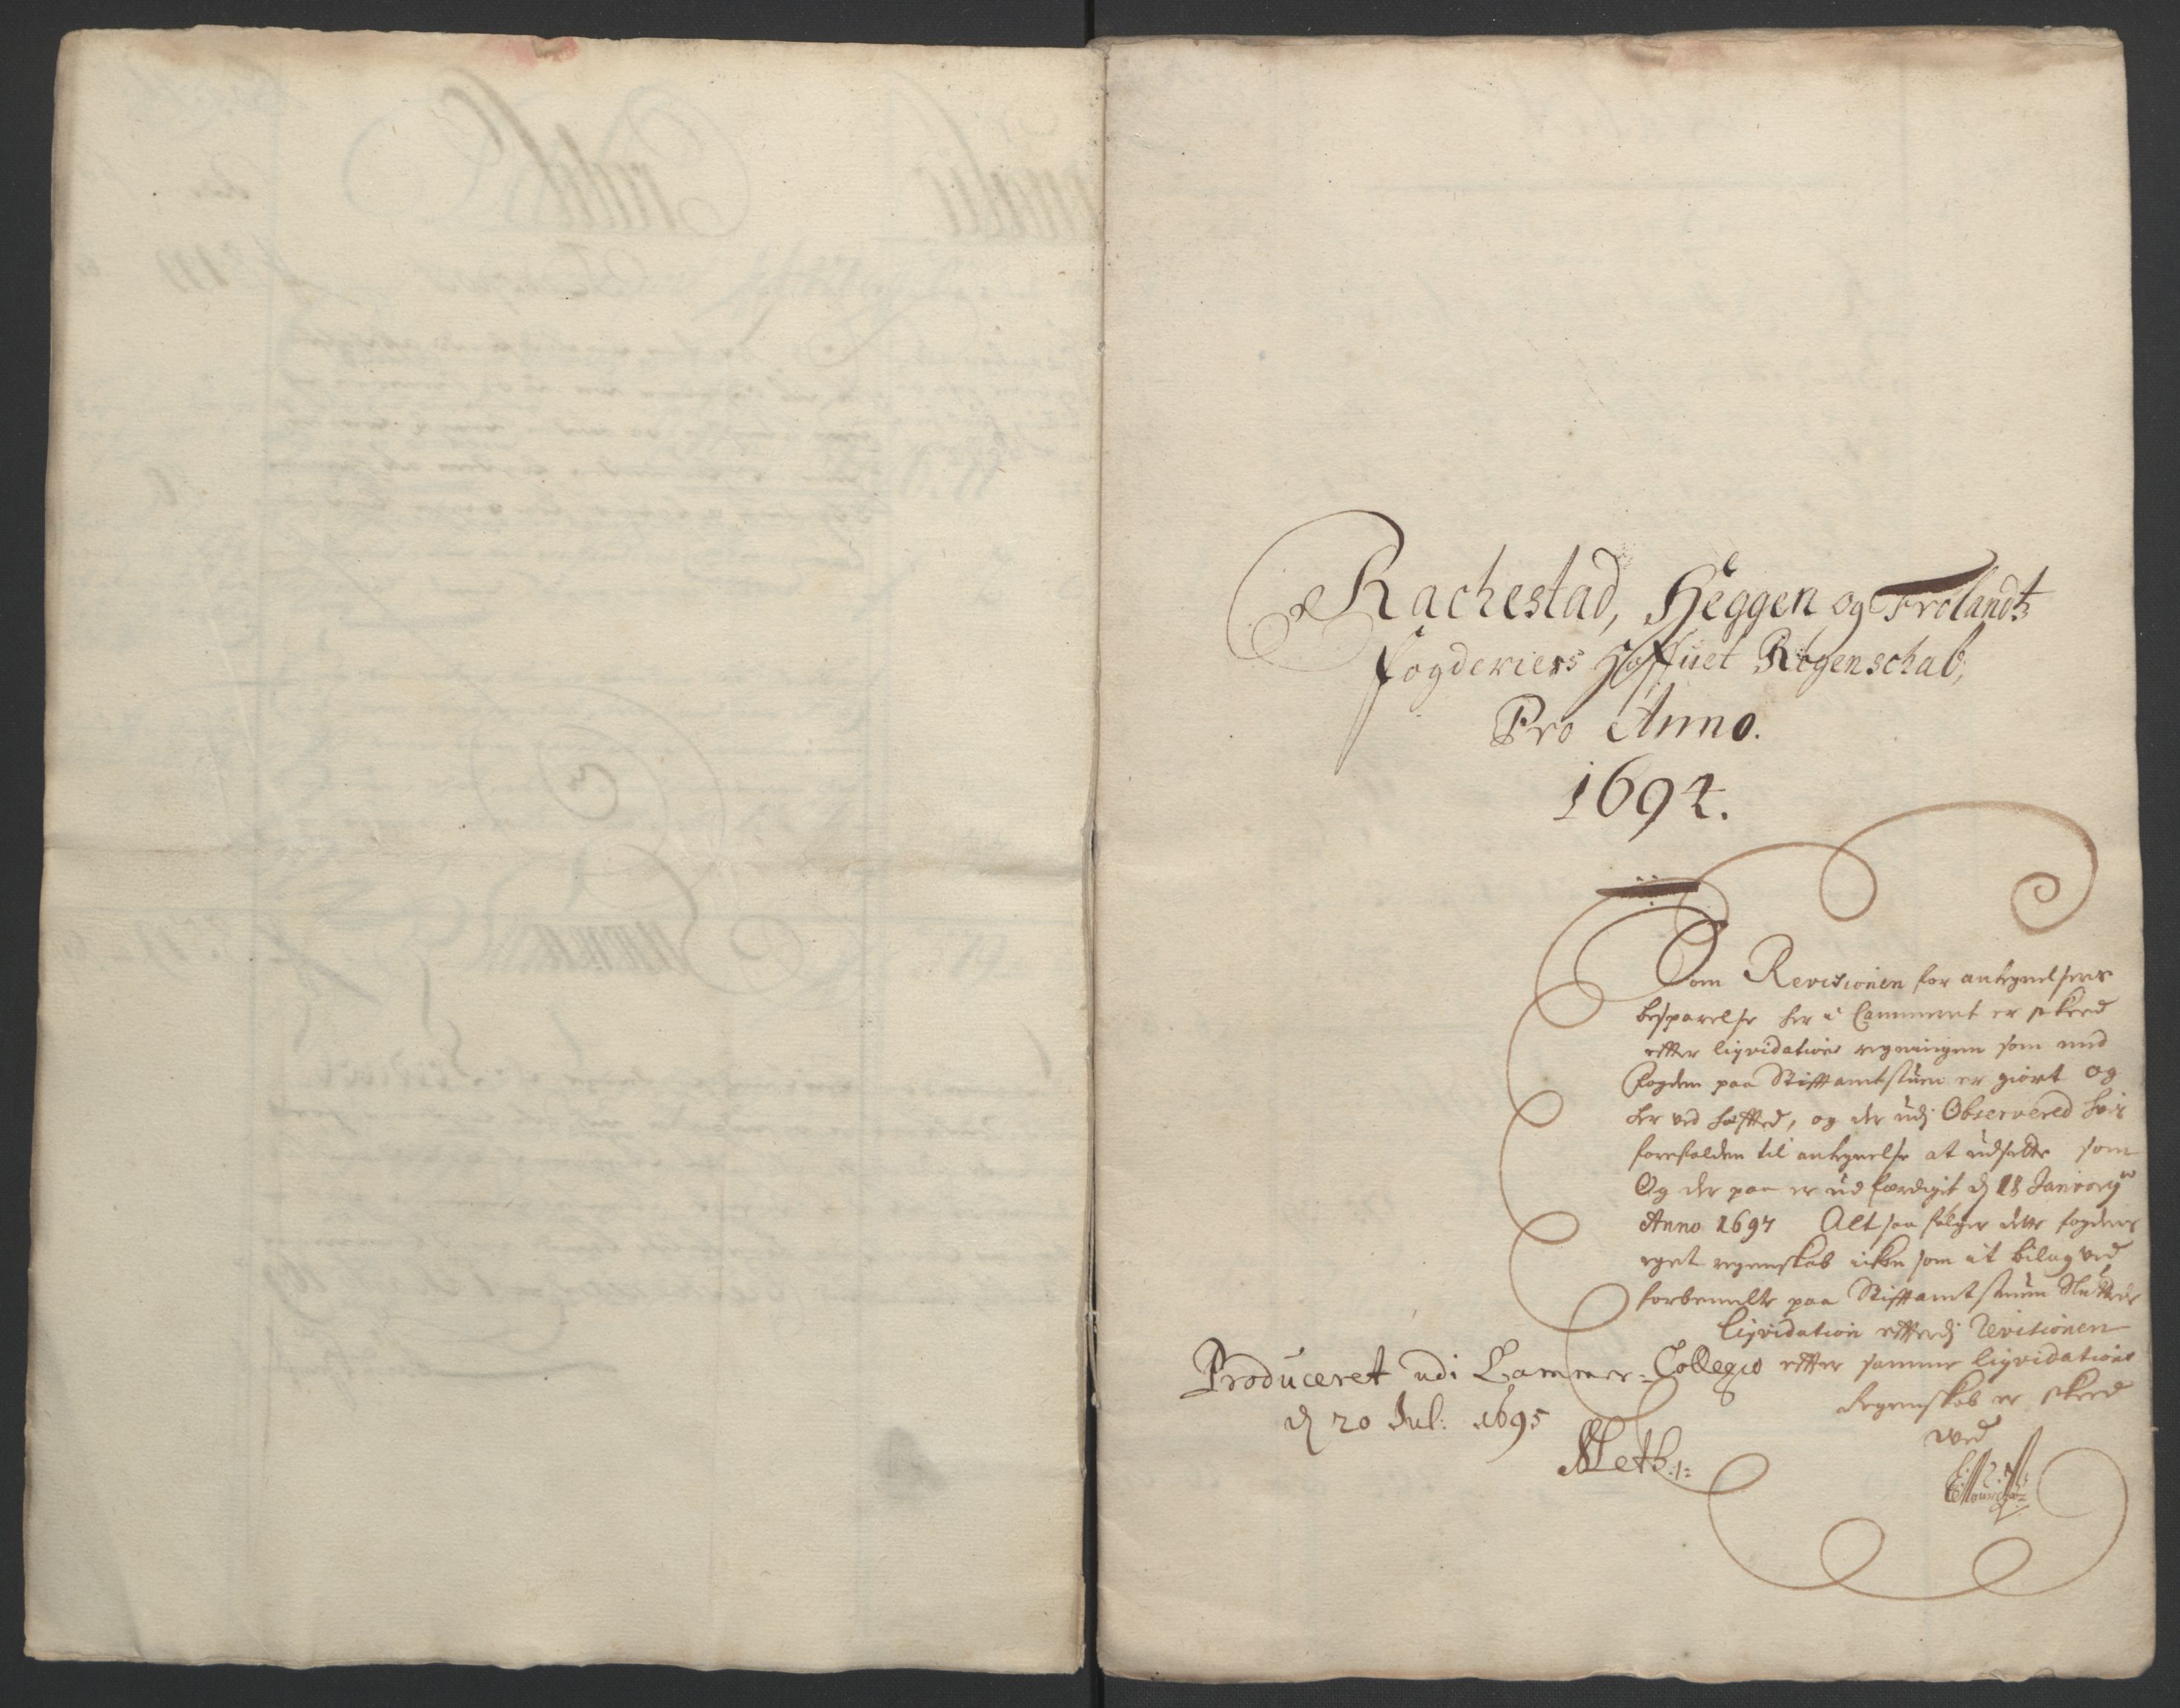 Rachestad, Heggen og Frolandtz
fogderiers Hoffuet Regenschab,
Pro Anno.
1694.
Som Revisionen for antegnelsers
besparelse her i Cammeret er skeed
effter liqvidations regningen som med
fogden paa Stifftamtstuen er giort og
her ved heffted, og der udj Observered hvis
forefalden til antegnelse at udsette som
Og der paa er ud færdigit dj 18 Janvary
Anno 1697 Alt saa følger dette fogdens
eget regenskab ickon som it bilag ved
forbemelte paa Stifftamtstuen Sluttede
liqvidation effterdj Revisionen
effter samme liqvidations
Regenskab er skeed
ved
Produceret udi Cammer-Collegio
dj 20 Jul: 1695